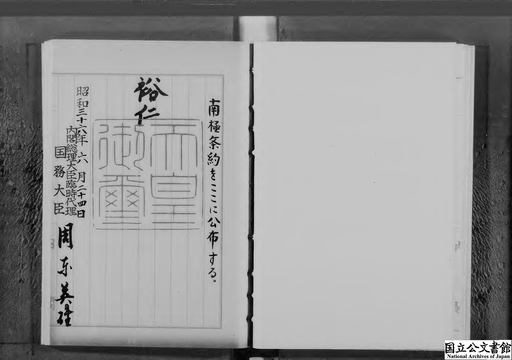 南極条約をここに公布する。
裕仁
天皇御璽
昭和三十六年六月二十四日
内閣総理大臣臨時代理
国務大臣 周東英雄
国立公文書館
National Archives of Japan